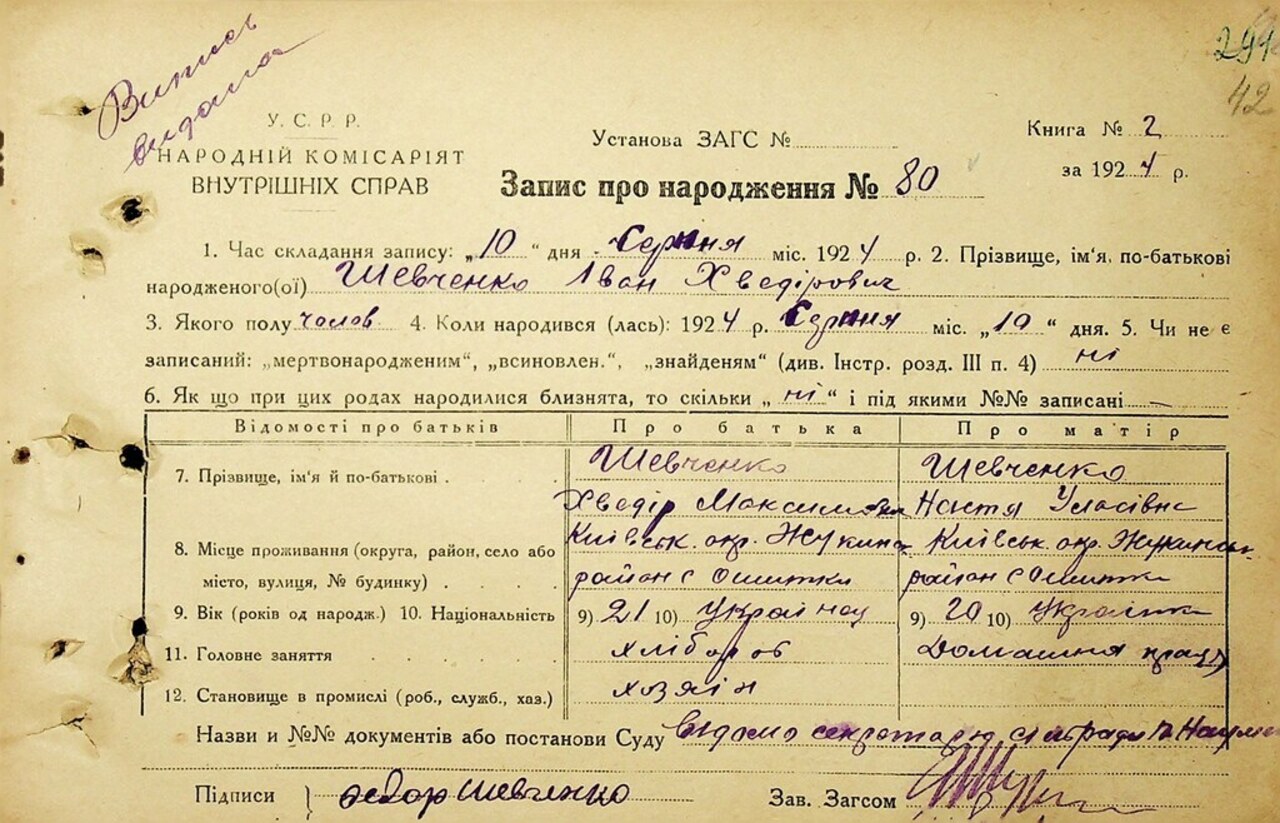 Випись
видана
291
42
У. С. Р. Р.
НАРОДНІЙ КОМІСАРІЯТ
ВНУТРІШНІХ СПРАВ
Установа ЗАГС №
Книга № 2
за 1924 р.
Запис про народження № 80
1. Час складання запису: „10“ дня Серпня міс. 1924 р. 2. Прізвище, ім'я, по-батькові
народженого(ої) Шевченко Іван Хведірович
3. Якого полу чолов 4. Коли народився (лась): 1924 р. Серпня міс. „10“ дня. 5. Чи не є
записаний: „мертвонародженим“, „всиновлен.“, „знайденям“ (див. Інстр. розд. III п. 4) ні
6. Як що при цих родах народилися близнята, то скільки „ні“ і під якими №№ записані —
Відомості про батьків Про батька Про матір
7. Прізвище, ім'я й по-батькові Шевченко Шевченко
Хведір Настя Уласівна
8. Місце проживання (округа, район, село або Київськ. окр. Київськ. окр.
місто, вулиця, № будинку) район с Ошитки район с Ошитки
9. Вік (років од народж.) 10. Національність 9) 21 10) 9) 20 10) Українка
11. Головне заняття хлібороб Домашня праця
12. Становище в промислі (роб., служб., хаз.) хозяін
Назви и №№ документів або постанови Суду відомо секретарю сільради
Підписи } Федор Шевченко Зав. Загсом